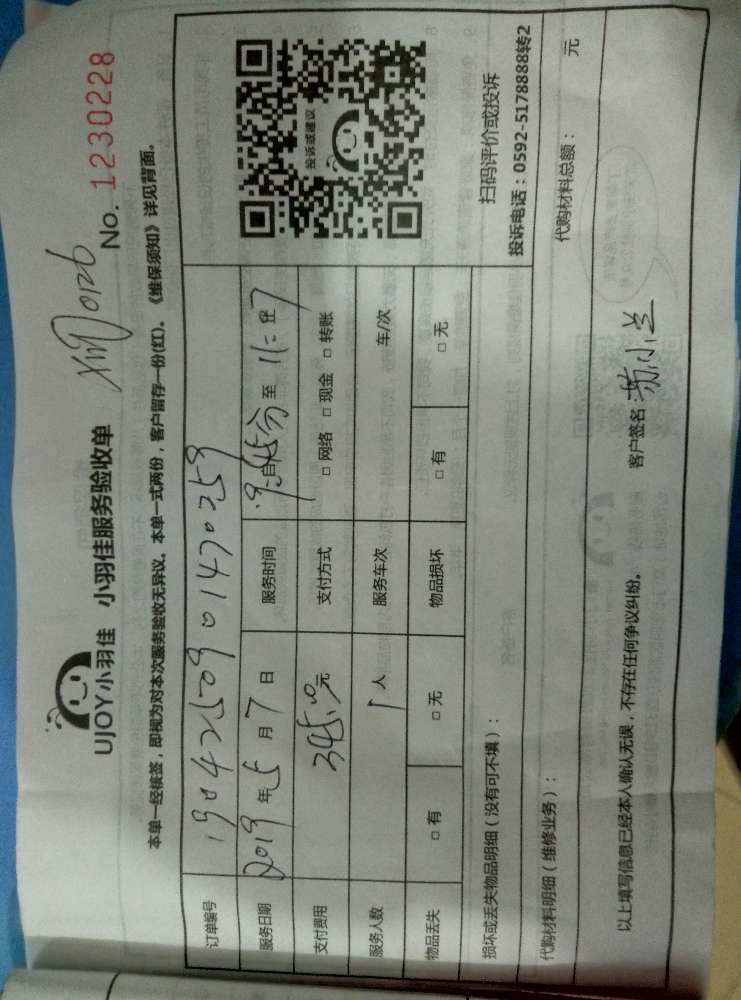 UJOY小羽佳 小羽佳服务验收单
No. 1230228
本单一经核签，即视为对本次服务验收无异议。本单一式两份，客户留存一份(红)。《维保须知》详见背面。
订单编号 1904250901470259
服务日期 2019年5月7日 服务时间 自 至
支付费用 345.00元 支付方式 □ 网络 □ 现金 □ 转账
服务人数 1人 服务车次 车/次
物品丢失 □ 有 □ 无 物品损坏 □ 有 □ 无
投诉或建议
扫码评价或投诉
投诉电话：0592-5178888转2
损坏或丢失物品明细（没有可不填）：
代购材料明细（维修业务）： 代购材料总额： 元
以上填写信息已经本人确认无误，不存在任何争议纠纷。 客户签名：苏小兰